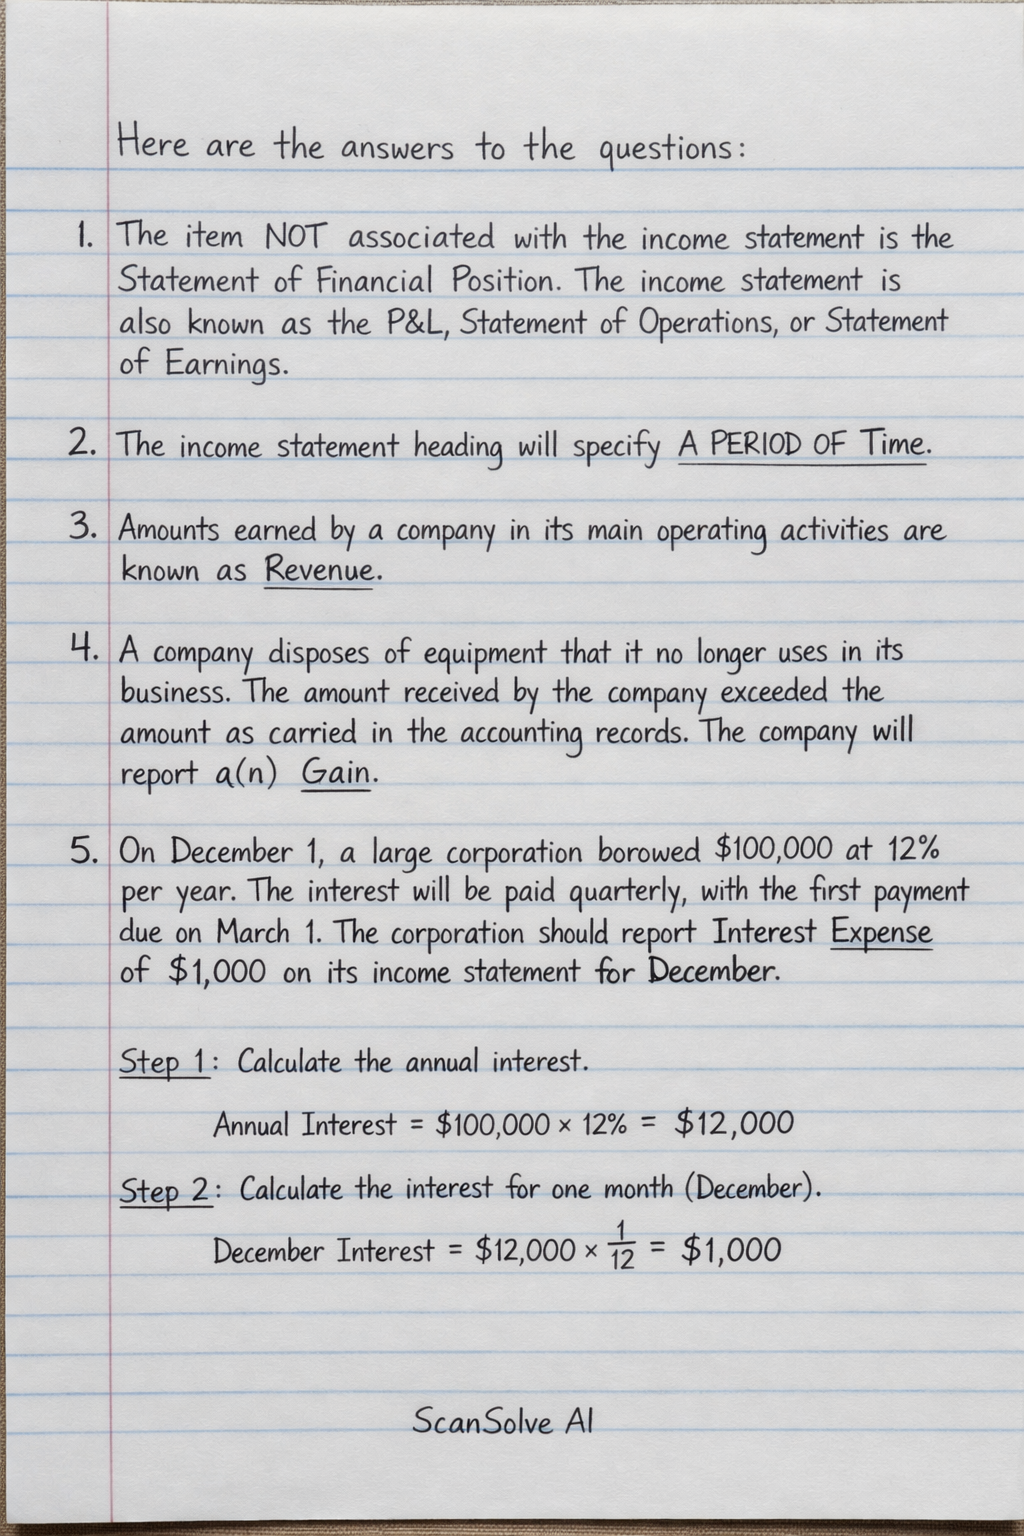 Here are the answers to the questions:
1. The item NOT associated with the income statement is the
Statement of Financial Position. The income statement is
also known as the P&L, Statement of Operations, or Statement
of Earnings.
2. The income statement heading will specify A PERIOD OF Time.
3. Amounts earned by a company in its main operating activities are
known as Revenue.
4. A company disposes of equipment that it no longer uses in its
business. The amount received by the company exceeded the
amount as carried in the accounting records. The company will
report a(n) Gain.
5. On December 1, a large corporation borowed $100,000 at 12%
per year. The interest will be paid quarterly, with the first payment
due on March 1. The corporation should report Interest Expense
of $1,000 on its income statement for December.
Step 1: Calculate the annual interest.
Annual Interest = $100,000 × 12% = $12,000
Step 2: Calculate the interest for one month (December).
December Interest = $12,000 × 1/12 = $1,000
ScanSolve AI